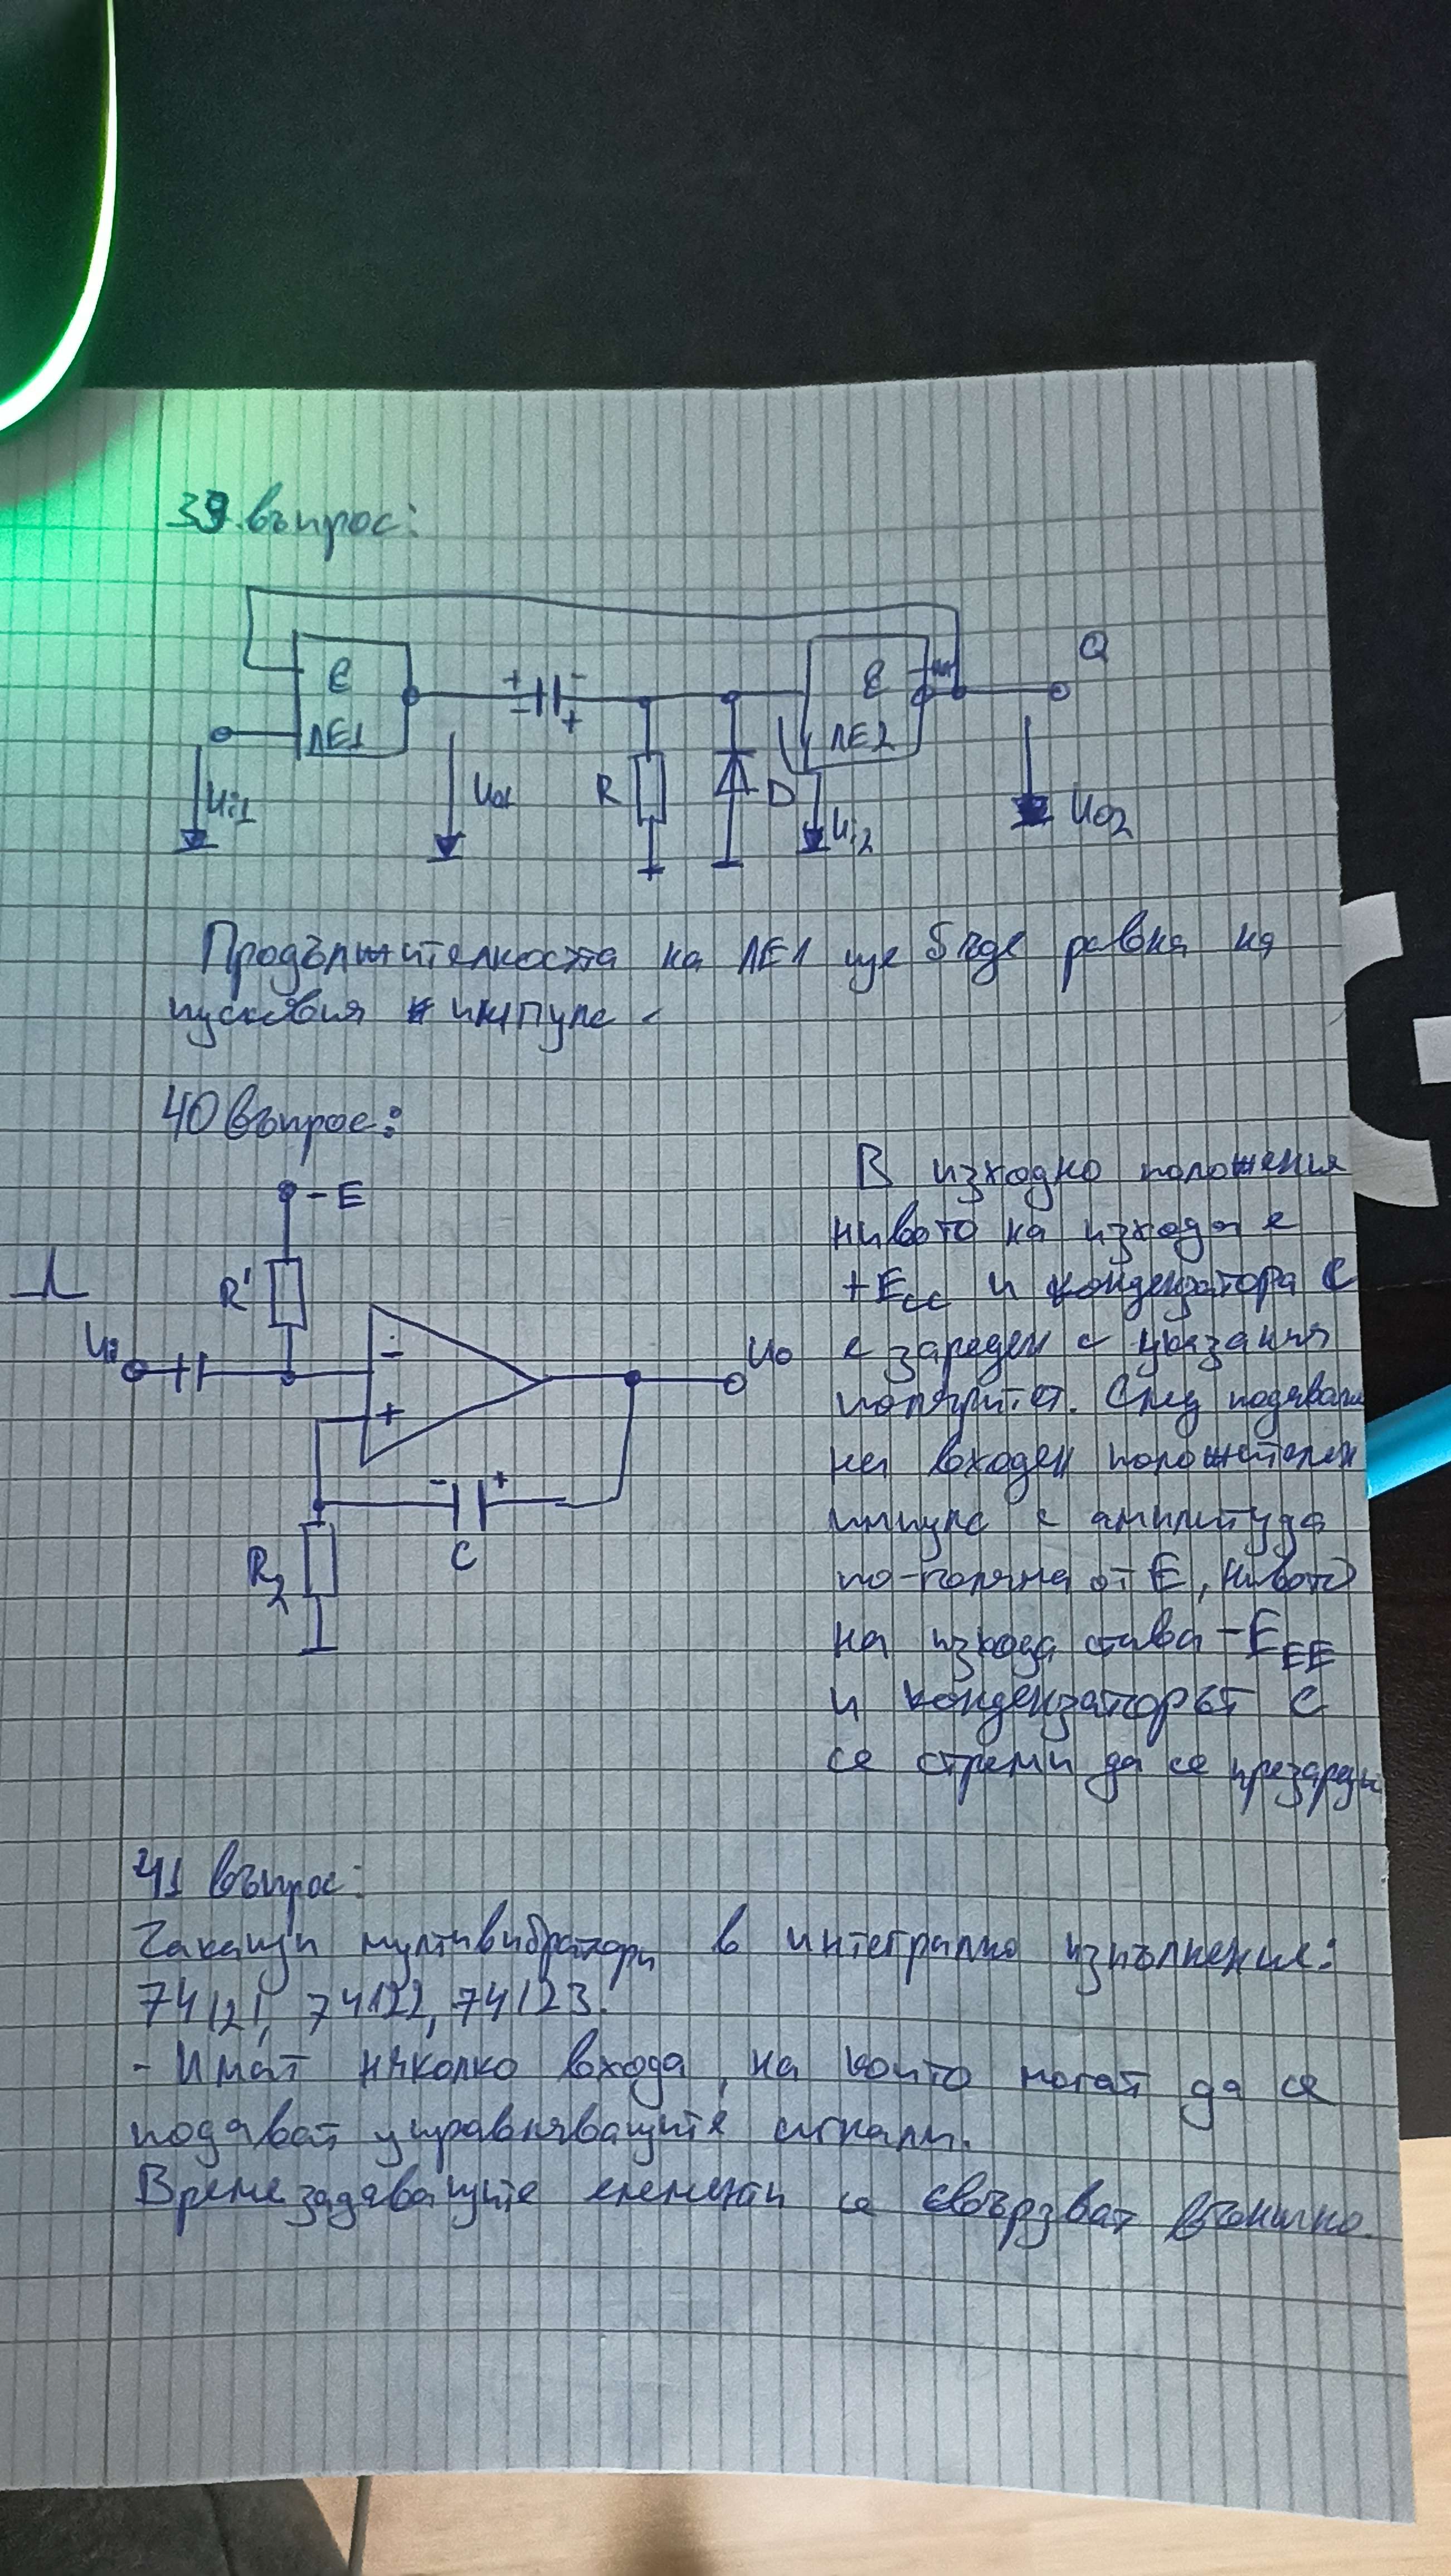 39. въпрос:
&
ЛЕ1
+
-
-
+
&
ЛЕ2
Q
Ui1
Uo1
R
D
Ui2
Uo2
Продължителността на ЛЕ1 ще бъде равна на
пусковия импулс
40 въпрос:
-E
R'
Ui
-
+
Uo
-
+
C
R2
В изходно положения
нивото на изхода е
+Ecc и кондензатора C
е зареден с указания
поляритет. След подаване
на входен положителен
импулс с амплитуда
по-голяма от E, нивото
на изхода става -EEE
и кондензаторът C
се стреми да се презареди
41 въпрос:
Чакащи мултивибратори в интегрално изпълнение:
74121, 74122, 74123.
- Имат няколко входа, на които могат да се
подават управляващите сигнали.
Времезадаващите елементи се свързват външно.